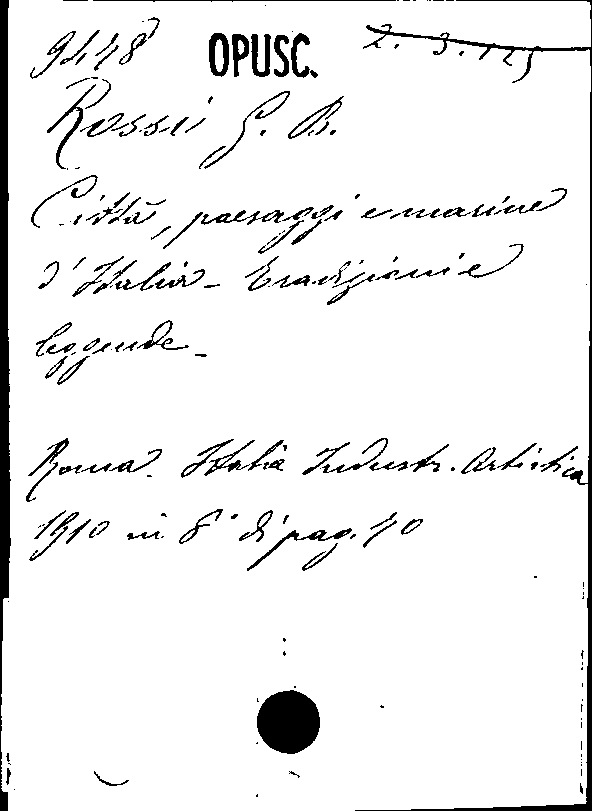 9448 OPUSC. 2. 3. 125
Rossi G. B.
Città, paesaggi e marine
d'Italia - Tradizioni e
leggende -
Roma. Italia Industr. Artistica
1910 in 8° di pag. 40